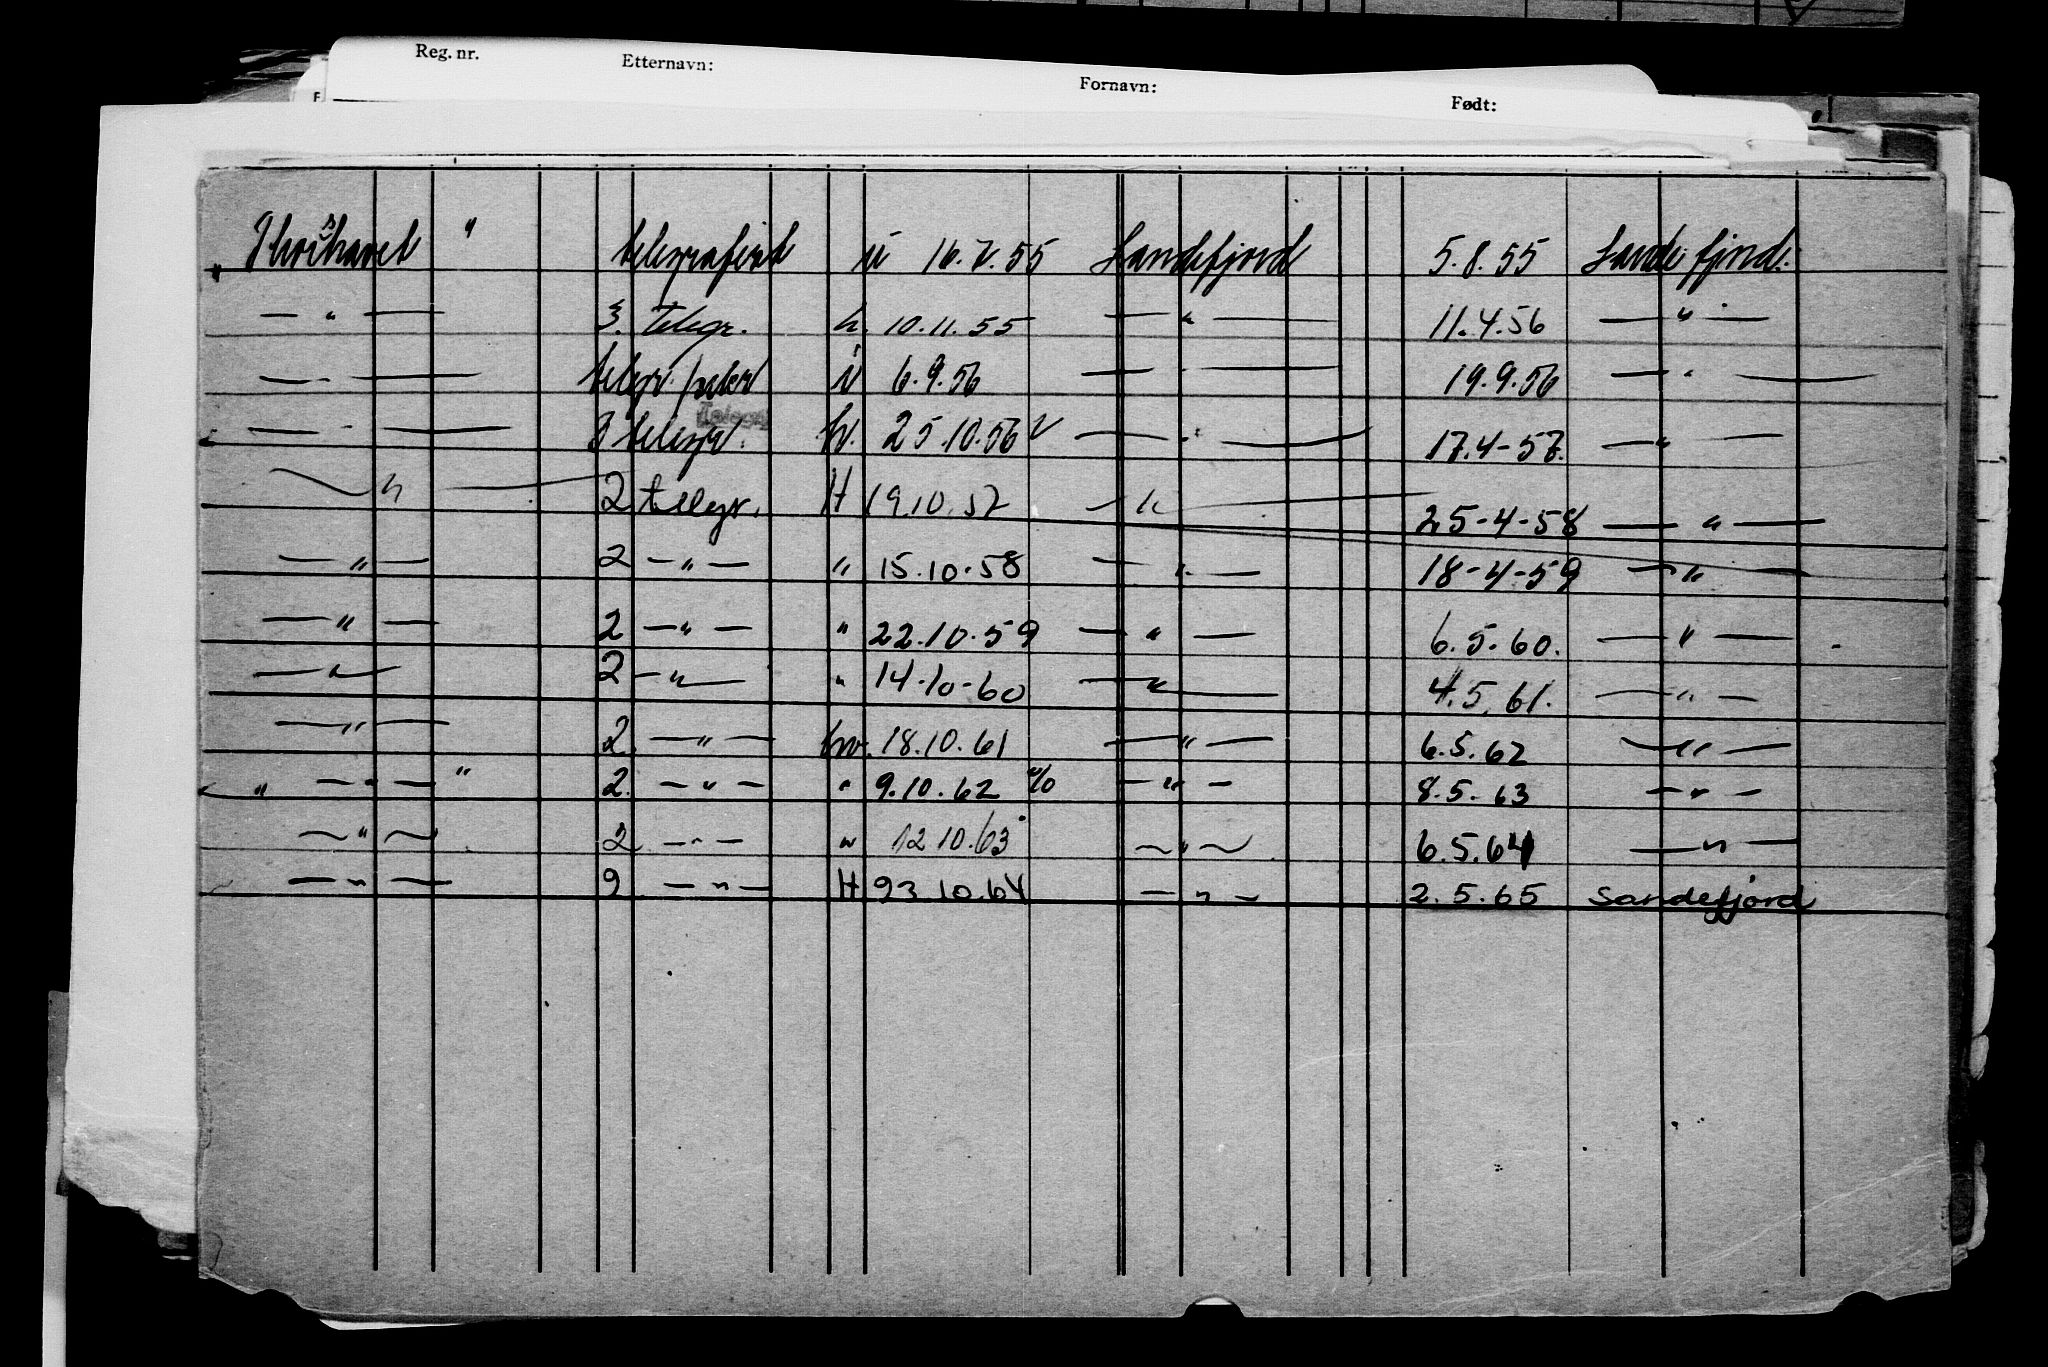 Reg. nr. Etternavn: Fornavn: Født:
" Thorshavet " telegrafist ü 16.7.55 Sandefjord 5.8.55 Sandefjord.
— " — 3. telegr. h. 10.11.55 — " — 11.4.56 — " —
— " — telegr. ü 6.9.56 — " — 19.9.56 — " —
— " — 3 telegr. hv. 25.10.56 — " — 17.4-57. — " —
— " — 2 telegr. H 19.10.57 — " — 25-4-58 — " —
— " — 2 — " — " 15.10.58 — " — 18-4-59 — " —
— " — 2 — " — " 22.10.59 — " — 6.5.60. — " —
— " — 2 — " — " 14-10-60 — " — 4.5.61. — " —
— " — 2 — " — hv. 18.10.61 — " — 6.5.62 — " —
" — " — " 2. — " — " 9.10.62 % — " — 8.5.63 — " —
— " — 2 — " — " 12 10.63 — " — 6.5.64 — " —
— " — 2 — " — H 23.10.64 — " — 2.5.65 Sandefjord